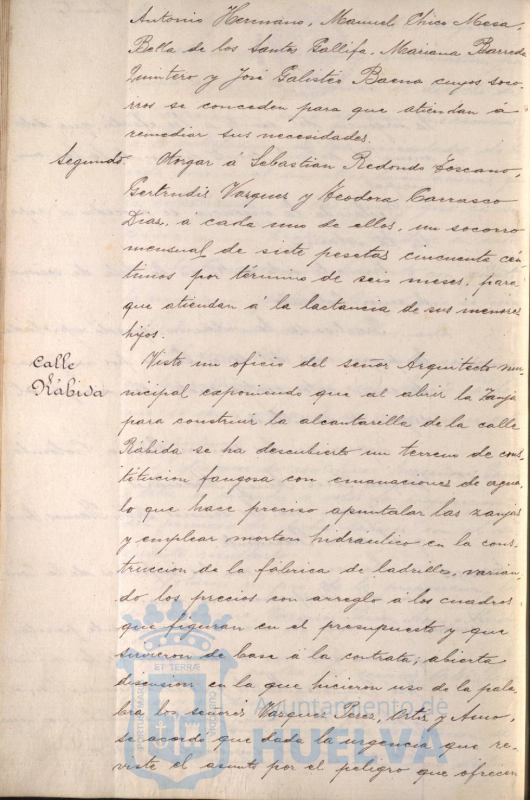 Antonio Hermano, Manuel Chico Mesa,
Bella de los Santos Gallifa, Mariana Barreda
Quintero y José Galisteo Baena cuyos soco-
rros se conceden para que atiendan á
remediar sus necesidades.
Segundo Otorgar á Sebastian Redondo Toscano,
Gertrudis Vazquez y Teodora Carrasco
Dias, á cada uno de ellos, un socorro
mensual de siete pesetas cincuenta cen
timos por término de seis meses, para
que atiendan á la lactancia de sus menores
hijos.
calle
Rábida
Visto un oficio del señor Arquitecto mu-
nicipal exponiendo que al abrir la zanja
para construir la alcantarilla de la calle
Rábida se ha descubierto un terreno de cons-
titucion fangosa con emanaciones de agua,
lo que hace preciso apuntalar las zanjas
y emplear mortero hidráulico en la cons-
truccion de la fábrica de ladrillo, varian-
do los precios con arreglo á los cuadros
que figuran en el presupuesto y que
sirvieron de base á la contrata; abierta
discusion en la que hicieron uso de la pala-
bra los señores Vazquez Perez, Ortiz y
se acordó que dada la urgencia que re-
viste el asunto por el peligro que ofrecen
Ayuntamiento de
HUELVA
ET TERRÆ